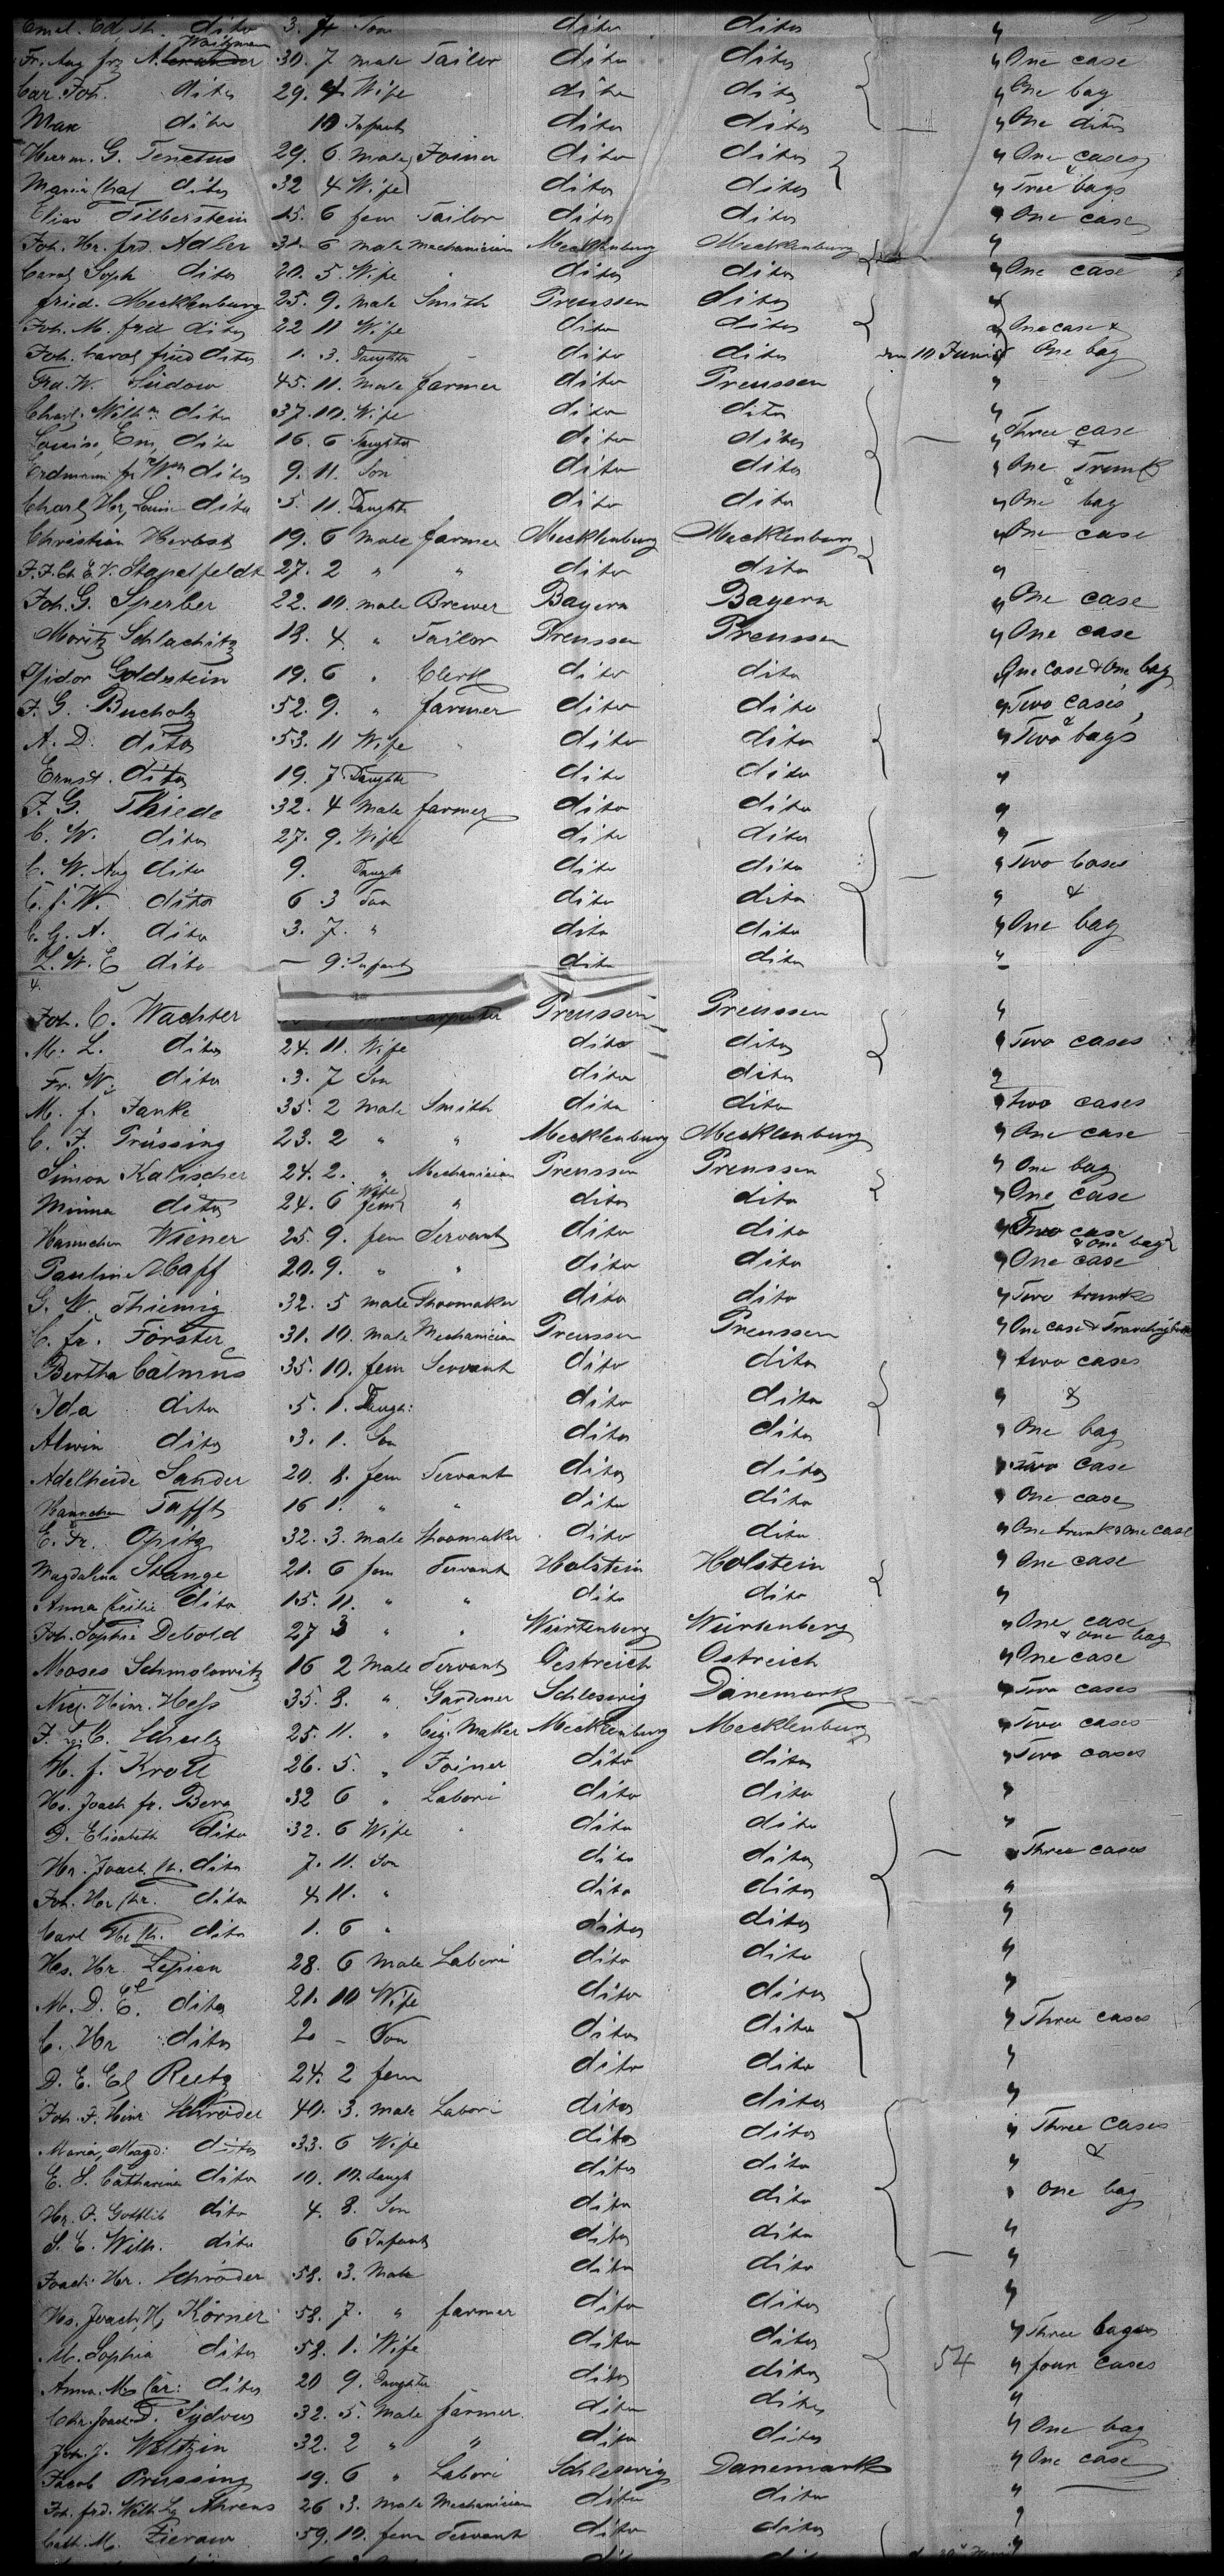 Emel. Ed. Th. dito 3. 7 Son dito dito "
Fr. Aug. frz. Waitzman 30. 7 male Tailor dito dito " One case
Car. Joh. dito 29. 4 Wife dito dito " One bag
Max dito 10 Infant dito dito " One dito
Herrm. G. Tenetus 29. 6. male Joiner dito dito " One cases
Maria dito 32 4 Wife dito dito " & Tree bags
Elias Silberstein 15. 6 fem Tailor dito dito " One case
Joh. Hr. frd. Adler 31. 6 male mechanician Mecklenburg Mecklenburg "
Carol Soph dito 20. 5. Wife dito dito " One case
fried. Mecklenburg 25. 9. male Smith Preussen dito "
Joh. M. frid dito 22 11 Wife dito dito " One case &
Joh. Carol fried dito 1. 3. Daughter dito dito den 10 Juni One bag
Frd. W. Südow 45. 11. male farmer dito Preussen "
Charl. Wilh. dito 37. 10. Wife dito dito "
Louise, Em, dito 16. 6 Daughter dito dito " Three case
Erdmann fr Wm dito 9. 11. Son dito dito " & One Trunk
Charl, Hr, Louise dito 5. 11. Daughter dito dito " & One bag
Christian Herbst 19. 6 male farmer Mecklenburg Mecklenburg " One case
J. J. Ch. E. V. Stapelfeldt 27. 2 " " dito dito "
Joh. G. Sperber 22. 10. male Brewer Bayern Bayern " One case
Moritz Schlachitz 18. 4. " Tailor Preussen Preussen " One case
Isidor Goldstein 19. 6 " Clerk dito dito One case & One bag
F. G. Bucholz 52. 9. " farmer dito dito " Two cases,
A. D. dito 53. 11 Wife dito dito " & Two bags
Ernst. dito 19. 7 Daughter dito dito "
F. G. Thiede 32. 4 male farmer dito dito "
C. W. dito 27. 9. Wife dito dito "
C. W. Aug dito 9. Daugh dito dito " Two Cases
C. f. W. dito 6 3 Son dito dito " &
C. G. A. dito 3. 7. " dito dito " One bag
L. W. E dito — 9. Infant dito dito "
4.
Joh. C. Wachter Carpenter Preussen Preussen "
M. L. dito 24. 11. Wife dito dito " Two cases
Fr. W. dito 3. 7 Son dito dito "
M. f. Janke 35. 2 male Smith dito dito " two cases
C. J. Prüssing 23. 2 " " Mecklenburg Mecklenburg " One case
Simon Kalischer 24. 2. " Mechanician Preussen Preussen " One bag
Minna dito 24. 6 Wife fem " dito dito " One case
Hannchen Wiener 25. 9. fem Servant dito dito " Two case & One bag
Pauline Haff 20. 9. " " dito dito " One case
G. W. Thiemig 32. 5 male Shoomaker dito dito " Two trunks
C. fr. Förster 31. 10. male Mechanician Preussen Preussen " One case &
Bertha Calmus 35. 10. fem Servant dito dito " two cases
Ida dito 5. 1. Daugh: dito dito " &
Alwin dito 3. 1. Son dito dito " One bag
Adelheide Sander 20. 8. fem Servant dito dito " Two case
Hannchen Tafft 16 1. " " dito dito " One case
E. Fr. Opitz 32. 3. male Shoomaker dito dito " One trunk & One case
Magdalena Stange 21. 6 fem Servant Holstein Holstein " One case
Anna Cecilie dito 15. 11. " " dito dito "
Joh. Sophie Debold 27 3 " " Würtenberg Würtenberg " One case & one bag
Moses Schmolowitz 16 2 male Servant Oestreich Ostreich " One case
Nicl. Hinr. Hess 35. 8. " Gardener Schleswig Danemark " Two cases
J. C. Schulz 25. 11. " Cig. Maker Mecklenburg Mecklenburg " Two cases
H. f. Kroll 26. 5. " Joiner dito dito " Two cases
Hs. Joach fr. Berg 32 6 " Labori dito dito "
D. Elisabeth dito 32. 6 Wife dito dito "
Hr. Joach. dito 7. 11. Son dito dito " Three cases
Joh. Hr Chr. dito 4 11. " dito dito "
Carl dito 1. 6 " dito dito "
Hs. Hr. Lepien 28. 6 male Labori dito dito "
M. D. El. dito 21. 10 Wife dito dito "
C. Hr dito 2 – Son dito dito " Three cases
D. E. El Reetz 24. 2 fem dito dito "
Joh. F. Hinr Schröder 40. 3. male Labori dito dito "
Maria, Magd: dito 33. 6 Wife dito dito " Three cases
E. S. Catharina dito 10. 10. daugh dito dito " &
Hr. A. Gottlib dito 4. 8. Son dito dito " One bag
S. E. Wilh. dito 6 Infant dito dito "
Joach. Hr. Schröder 58. 3. Male dito dito "
Hs. Joach H, Körner 58. 7. " farmer dito dito "
M. Sophia dito 58. 1. Wife dito dito " Three bages
Anna. M. Car: dito 20 9. Daughter dito dito 54 " four cases
Chr. Joach D. Sydow 32. 5. Male farmer. dito dito "
Joh. J. Weltzin 32. 2 " " dito dito " One bag
Jacob Prussing 19. 6 " Labori Schleswig Danemark " One case
Joh. frd. Wilh Lg Ahrens 26 3. male Mechanician dito dito "
Cath. M. Zierau 59. 10. fem Servant dito dito "